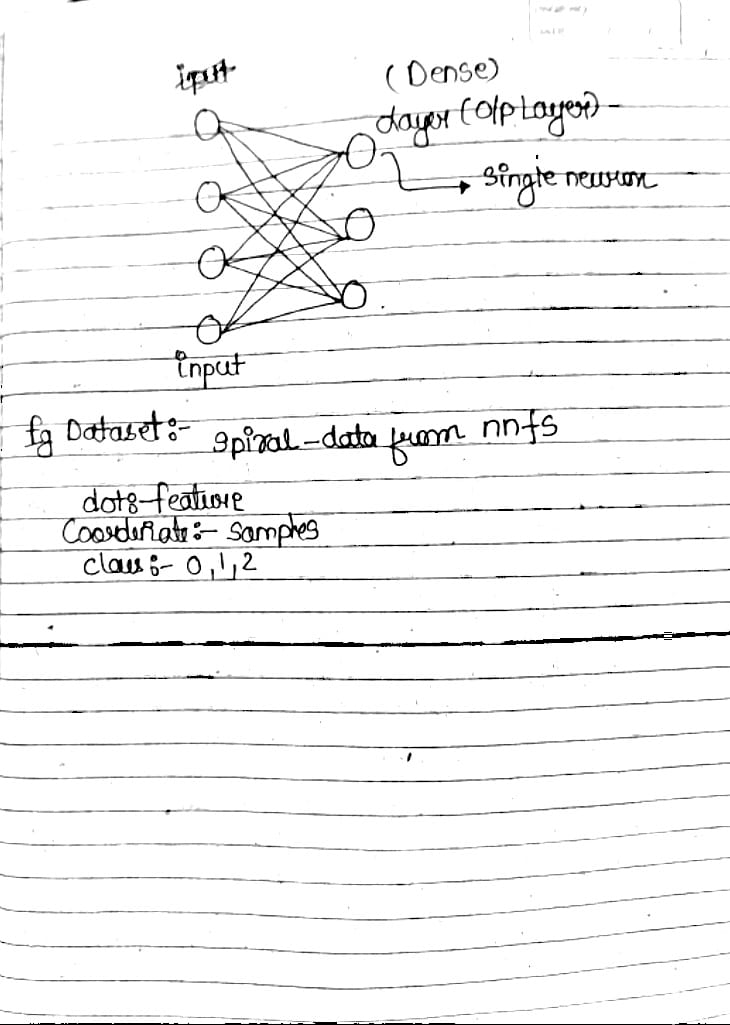 input
(Dense)
Layer (O/p Layer) -
single neuron
input
fg Dataset :- spiral-data from nnfs
dots-feature
Coordinate :- samples
class :- 0,1,2